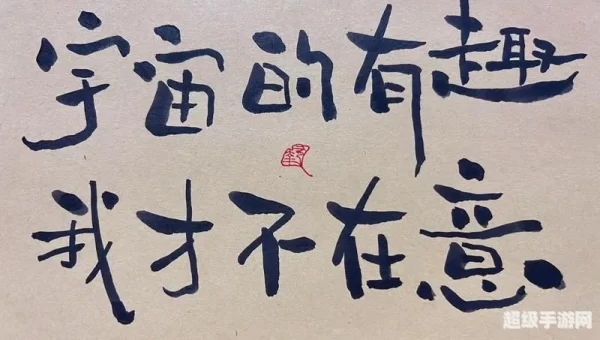 宇宙的有趣
我才不在意
超级手游网